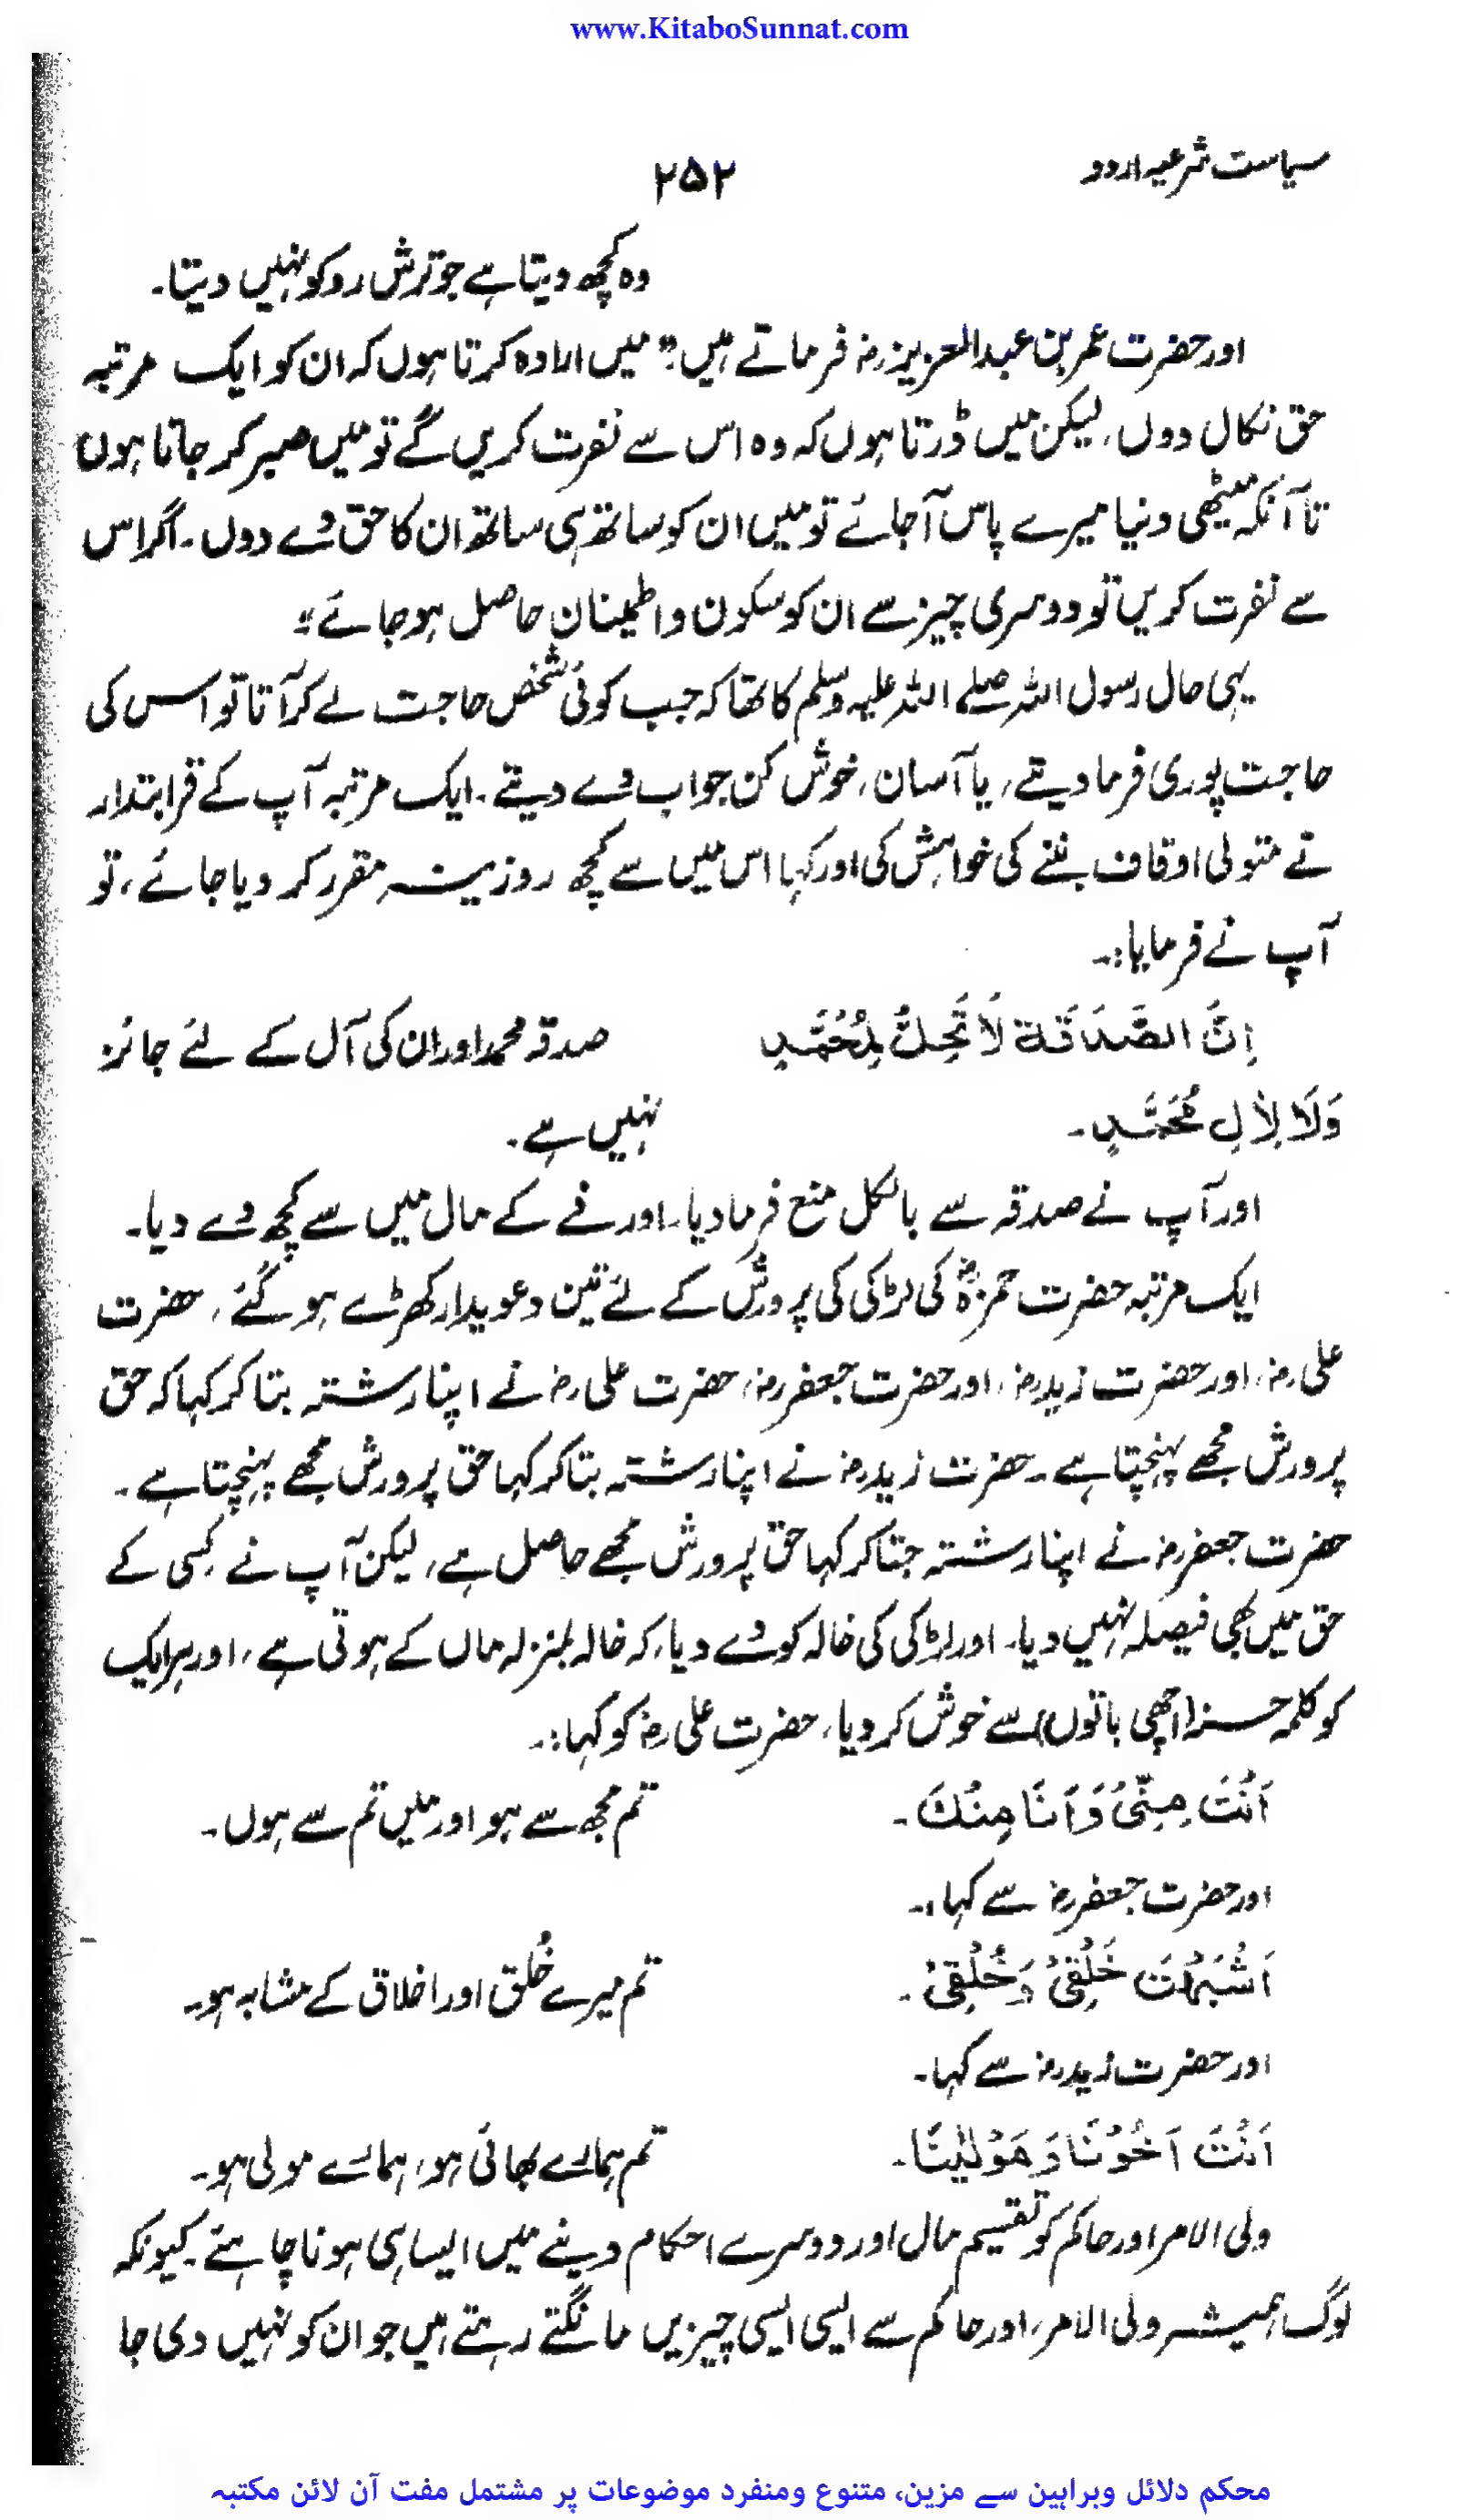 www.KitaboSunnat.com
سیاست شرعیہ اردو
۲۵۲
وہ کچھ دیتا ہے جو ترش رو کو نہیں دیتا۔
اور حضرت عمر بن عبدالعزیز رض فرماتے ہیں: "میں ارادہ کرتا ہوں کہ ان کو ایک مرتبہ
حق نکال دوں، لیکن میں ڈرتا ہوں کہ وہ اس سے نفرت کریں گے تو میں صبر کر جاتا ہوں
تا آنکہ میٹھی دنیا میرے پاس آجائے تو میں ان کو ساتھ ہی ساتھ ان کا حق دے دوں۔ اگر اس
سے نفرت کریں تو دوسری چیز سے ان کو سکون و اطمینان حاصل ہو جائے"
یہی حال رسول اللہ صلے اللہ علیہ وسلم کا تھا کہ جب کوئی شخص حاجت لے کر آتا تو اس کی
حاجت پوری فرما دیتے، یا آسان، خوش کن جواب دے دیتے۔ ایک مرتبہ آپ کے قرابتدار
نے متولی اوقاف بننے کی خواہش کی اور کہا اس میں سے کچھ روزینہ مقرر کر دیا جائے، تو
آپ نے فرمایا:۔
اِنَّ الصَّدَقَةَ لَا تَحِلُّ لِمُحَمَّدٍ صدقہ محمد اور ان کی آل کے لئے جائز
وَلَا لِاٰلِ مُحَمَّدٍ۔ نہیں ہے۔
اور آپ نے صدقہ سے بالکل منع فرما دیا۔ اور فے کے مال میں سے کچھ دے دیا۔
ایک مرتبہ حضرت حمزہؓ کی لڑکی کی پرورش کے لئے تین دعویدار کھڑے ہو گئے، حضرت
علی رض، اور حضرت زید رض، اور حضرت جعفر رض، حضرت علی رض نے اپنا رشتہ بتا کر کہا کہ حق
پرورش مجھے پہنچتا ہے۔ حضرت زید رض نے اپنا رشتہ بتا کر کہا حق پرورش مجھے پہنچتا ہے۔
حضرت جعفر رض نے اپنا رشتہ جتا کر کہا حق پرورش مجھے حاصل ہے، لیکن آپ نے کسی کے
حق میں بھی فیصلہ نہیں دیا۔ اور لڑکی کی خالہ کو دے دیا، کہ خالہ بمنزلہ ماں کے ہوتی ہے، اور ہر ایک
کو کلمہ حسنہ (اچھی باتوں) سے خوش کر دیا، حضرت علی رض کو کہا:۔
اَنْتَ مِنِّیْ وَاَنَا مِنْكَ۔ تم مجھ سے ہو اور میں تم سے ہوں۔
اور حضرت جعفر رض سے کہا:۔
اَشْبَهْتَ خَلْقِیْ وَخُلُقِیْ۔ تم میرے خُلق اور اخلاق کے مشابہ ہو۔
اور حضرت زید رض سے کہا۔
اَنْتَ اَخُوْنَا وَمَوْلٰینَا۔ تم ہمارے بھائی ہو، ہمارے مولی ہو۔
ولی الامر اور حاکم کو تقسیم مال اور دوسرے احکام دینے میں ایسا ہی ہونا چاہئے۔ کیونکہ
لوگ ہمیشہ ولی الامر، اور حاکم سے ایسی ایسی چیزیں مانگتے رہتے ہیں جو ان کو نہیں دی جا
محکم دلائل وبراہین سے مزین، متنوع ومنفرد موضوعات پر مشتمل مفت آن لائن مکتبہ